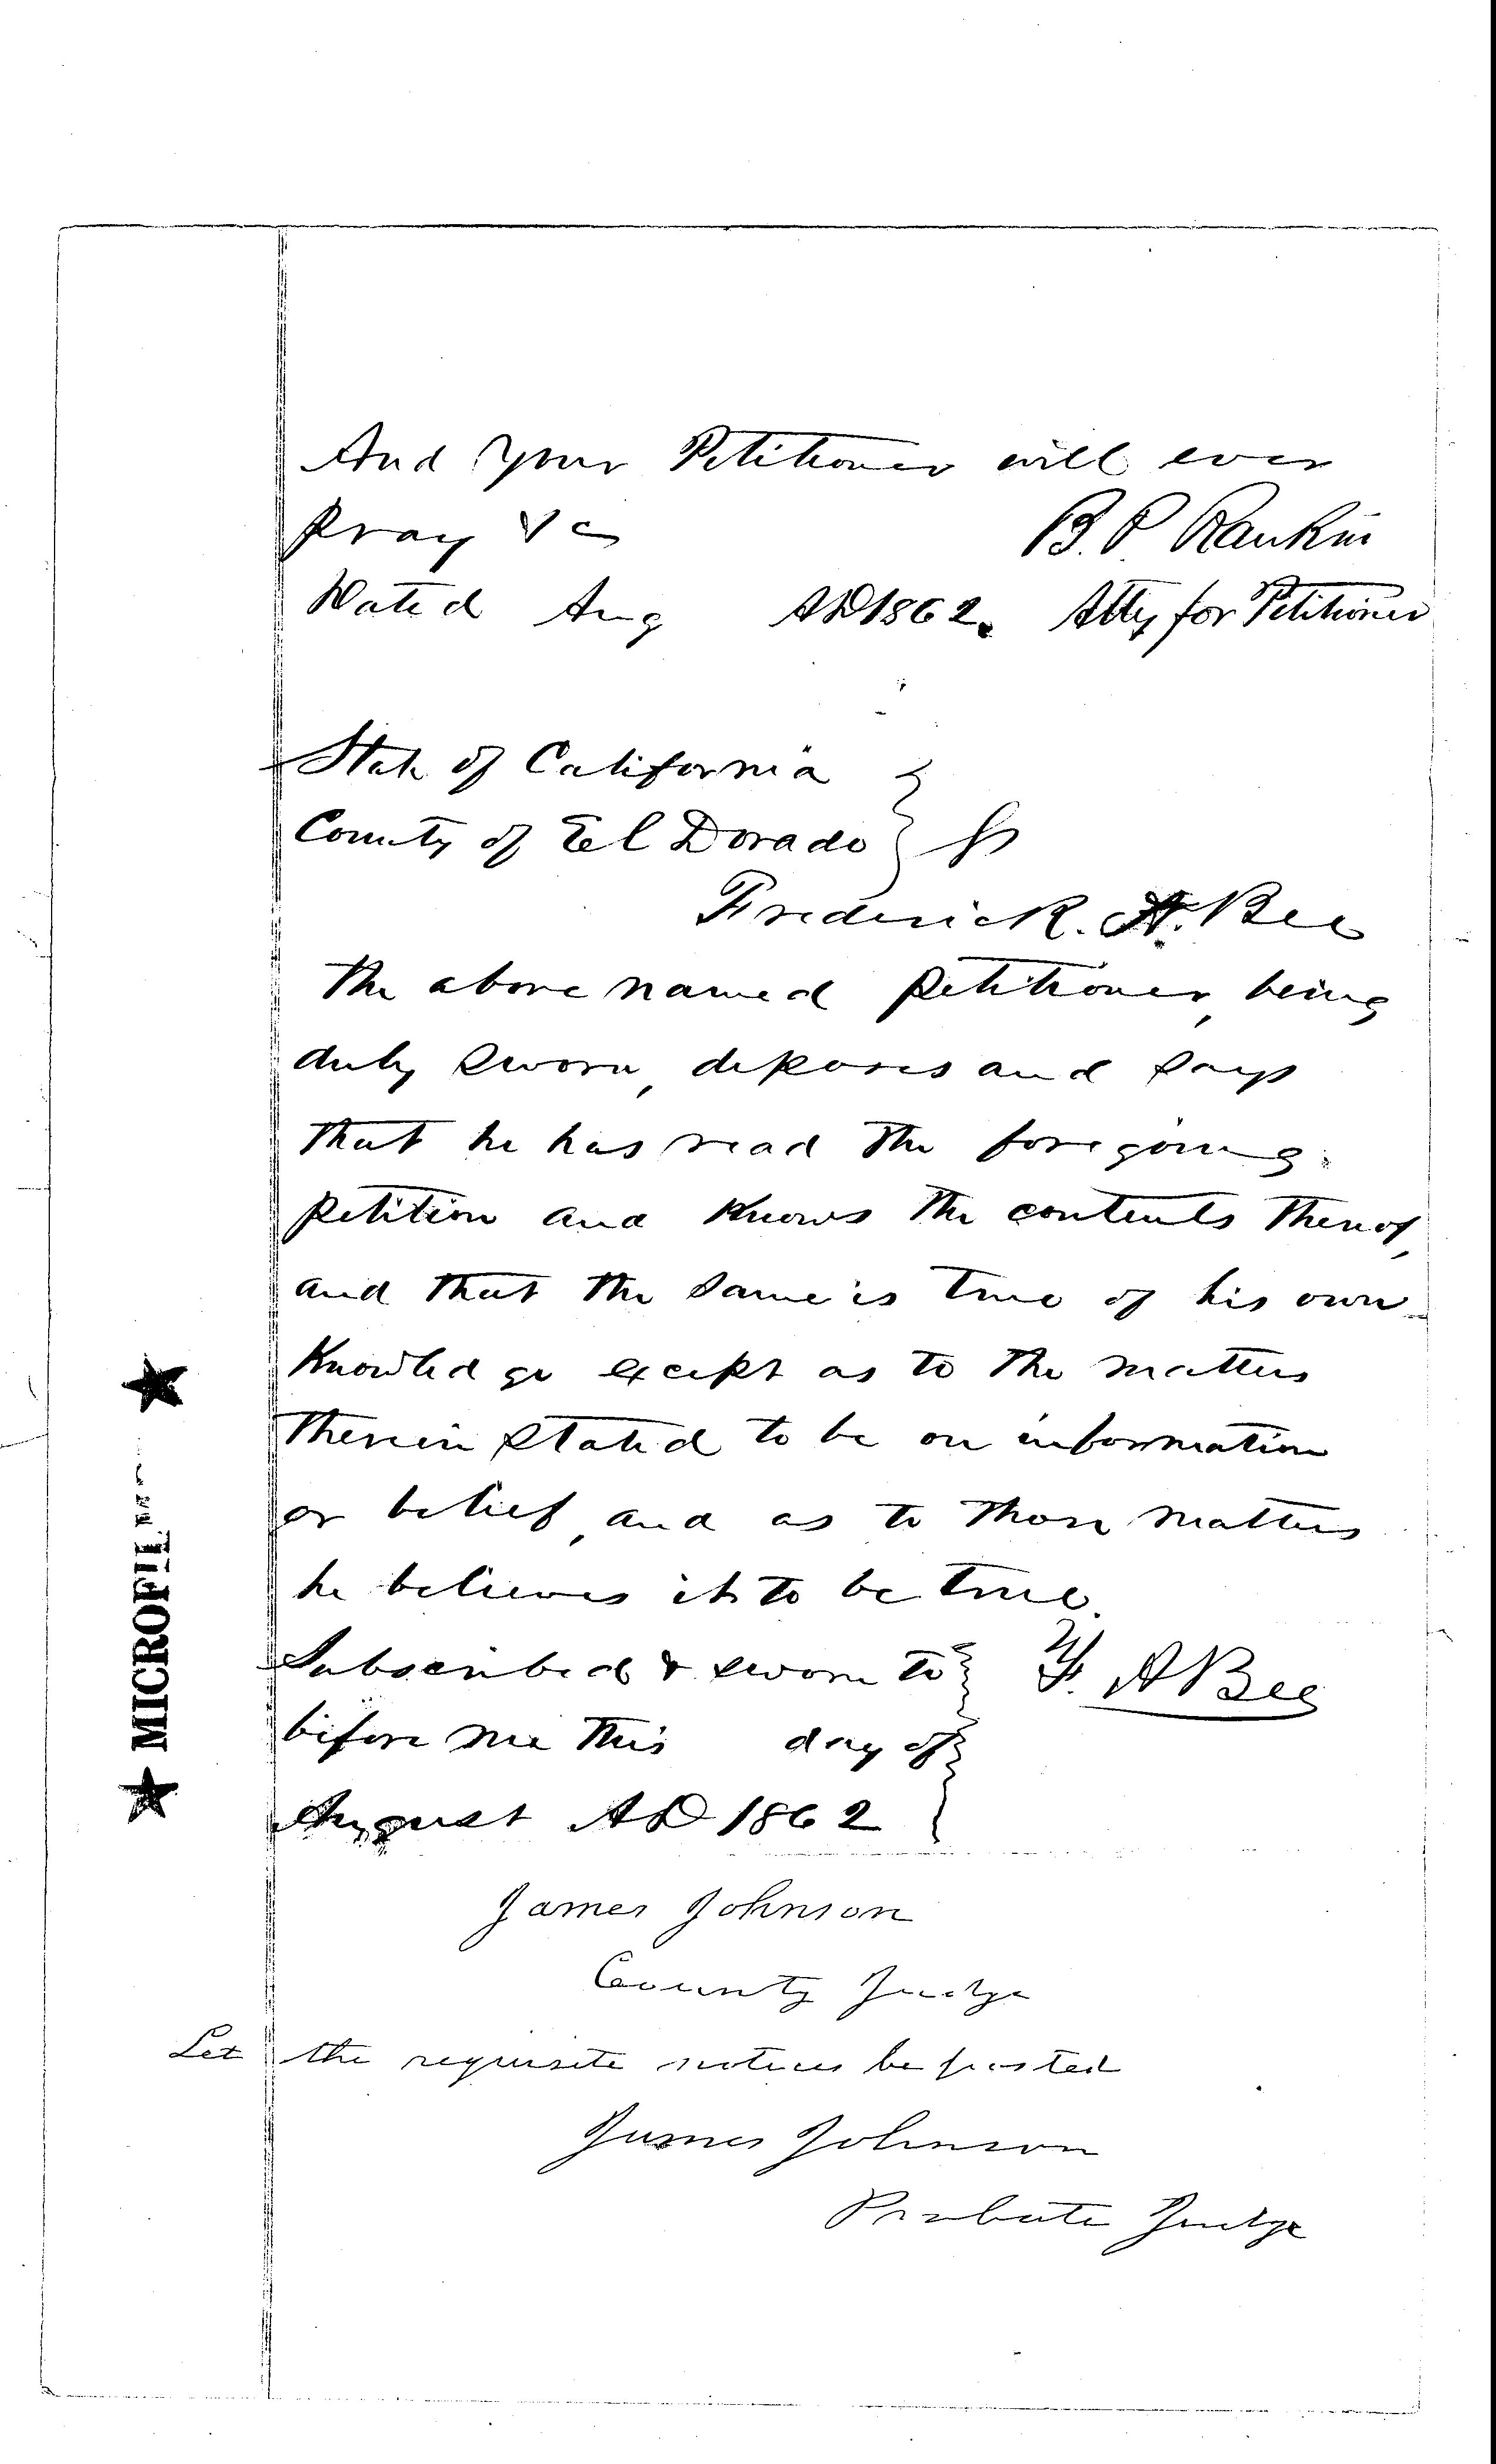 And your Petitioner will ever
Pray &c
B. P Rankin
Dated Aug AD 1862. Atty for Petitioner
State of California
County of El Dorado } ss
Frederick. A. Bee
The above named Petitioner, being
duly sworn, deposes and says
that he has read the foregoing
Petition and knows the contents thereof,
and that the same is true of his own
knowledge except as to the matters
therein stated to be on information
or belief, and as to those matters
he believes it to be true.
Subscribed & sworn to } F. A Bee
before me this day of
August AD 1862
James Johnson
County Judge
Let the requisite notices be posted
James Johnson
Probate Judge
★ MICROFIL ★